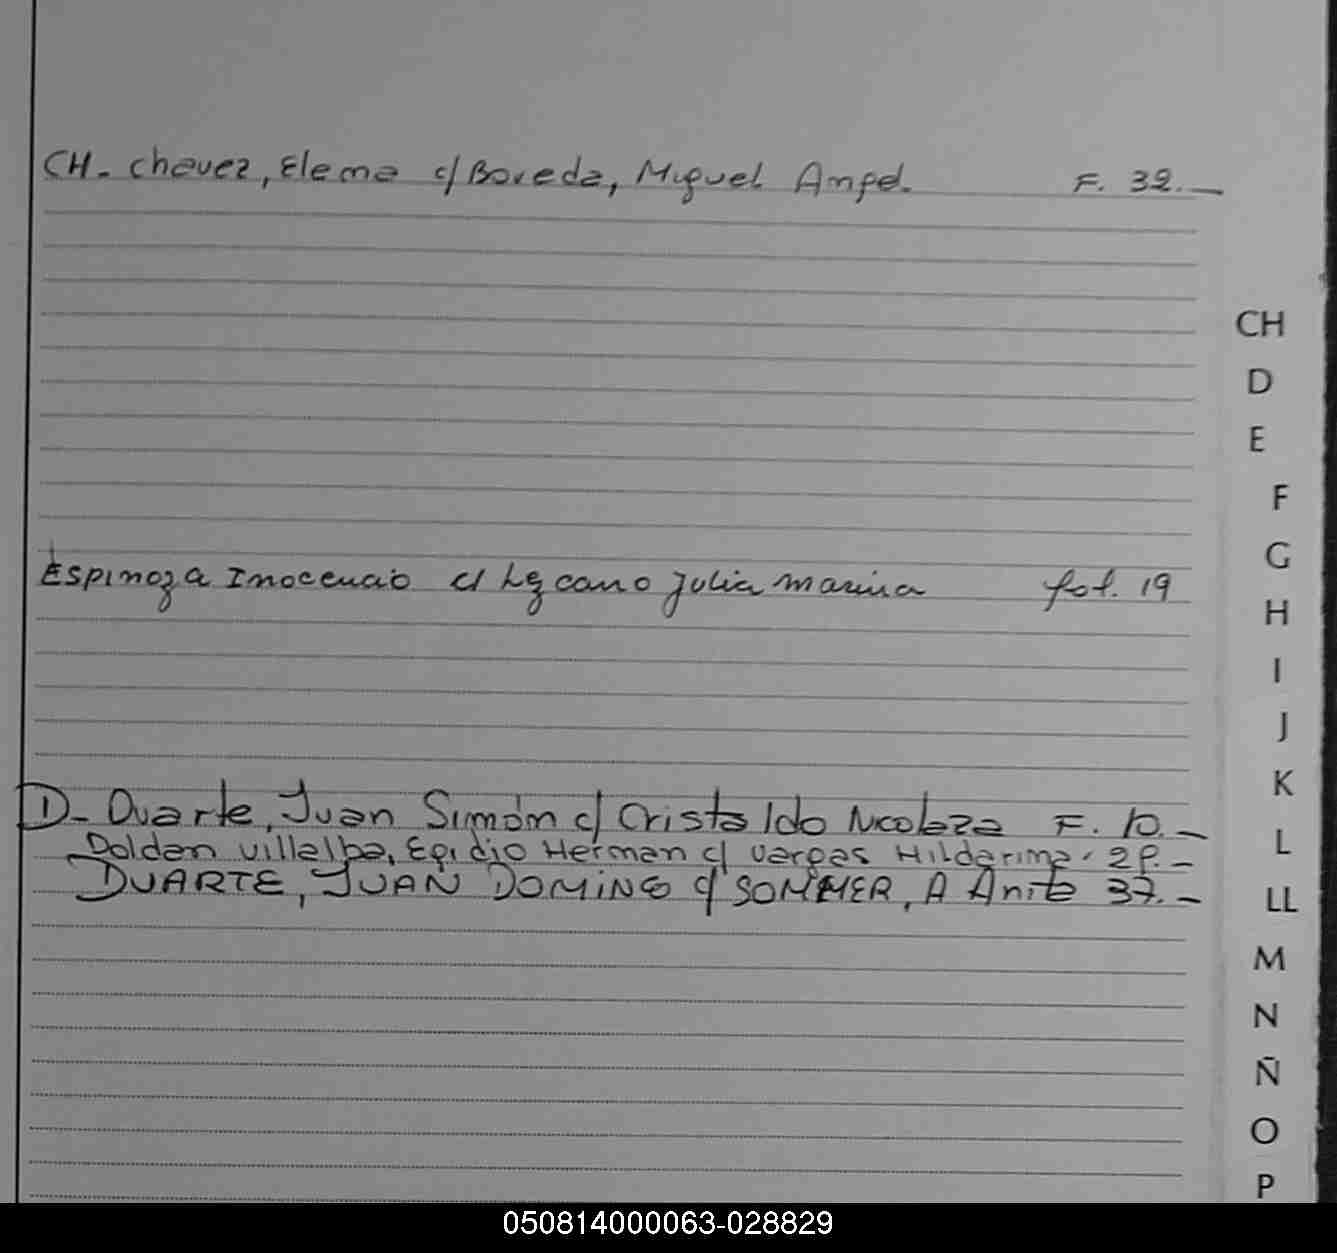 CH. Chavez, Elena c/ Boveda, Miguel Angel. F. 32.-
CH
D
E
F
G
Espinoza Inocencio c/ Lezcano Julia marina fol. 19
H
I
J
K
D- Duarte, Juan Simón c/ Cristaldo Nicolaza F. 10.-
Doldan Villalba, Egidio Herman c/ Vargas Hildarina. 28.-
L
DUARTE, JUAN DOMINGO c/ SOMMER, A Anita 37.-
LL
M
N
Ñ
O
P
050814000063-028829